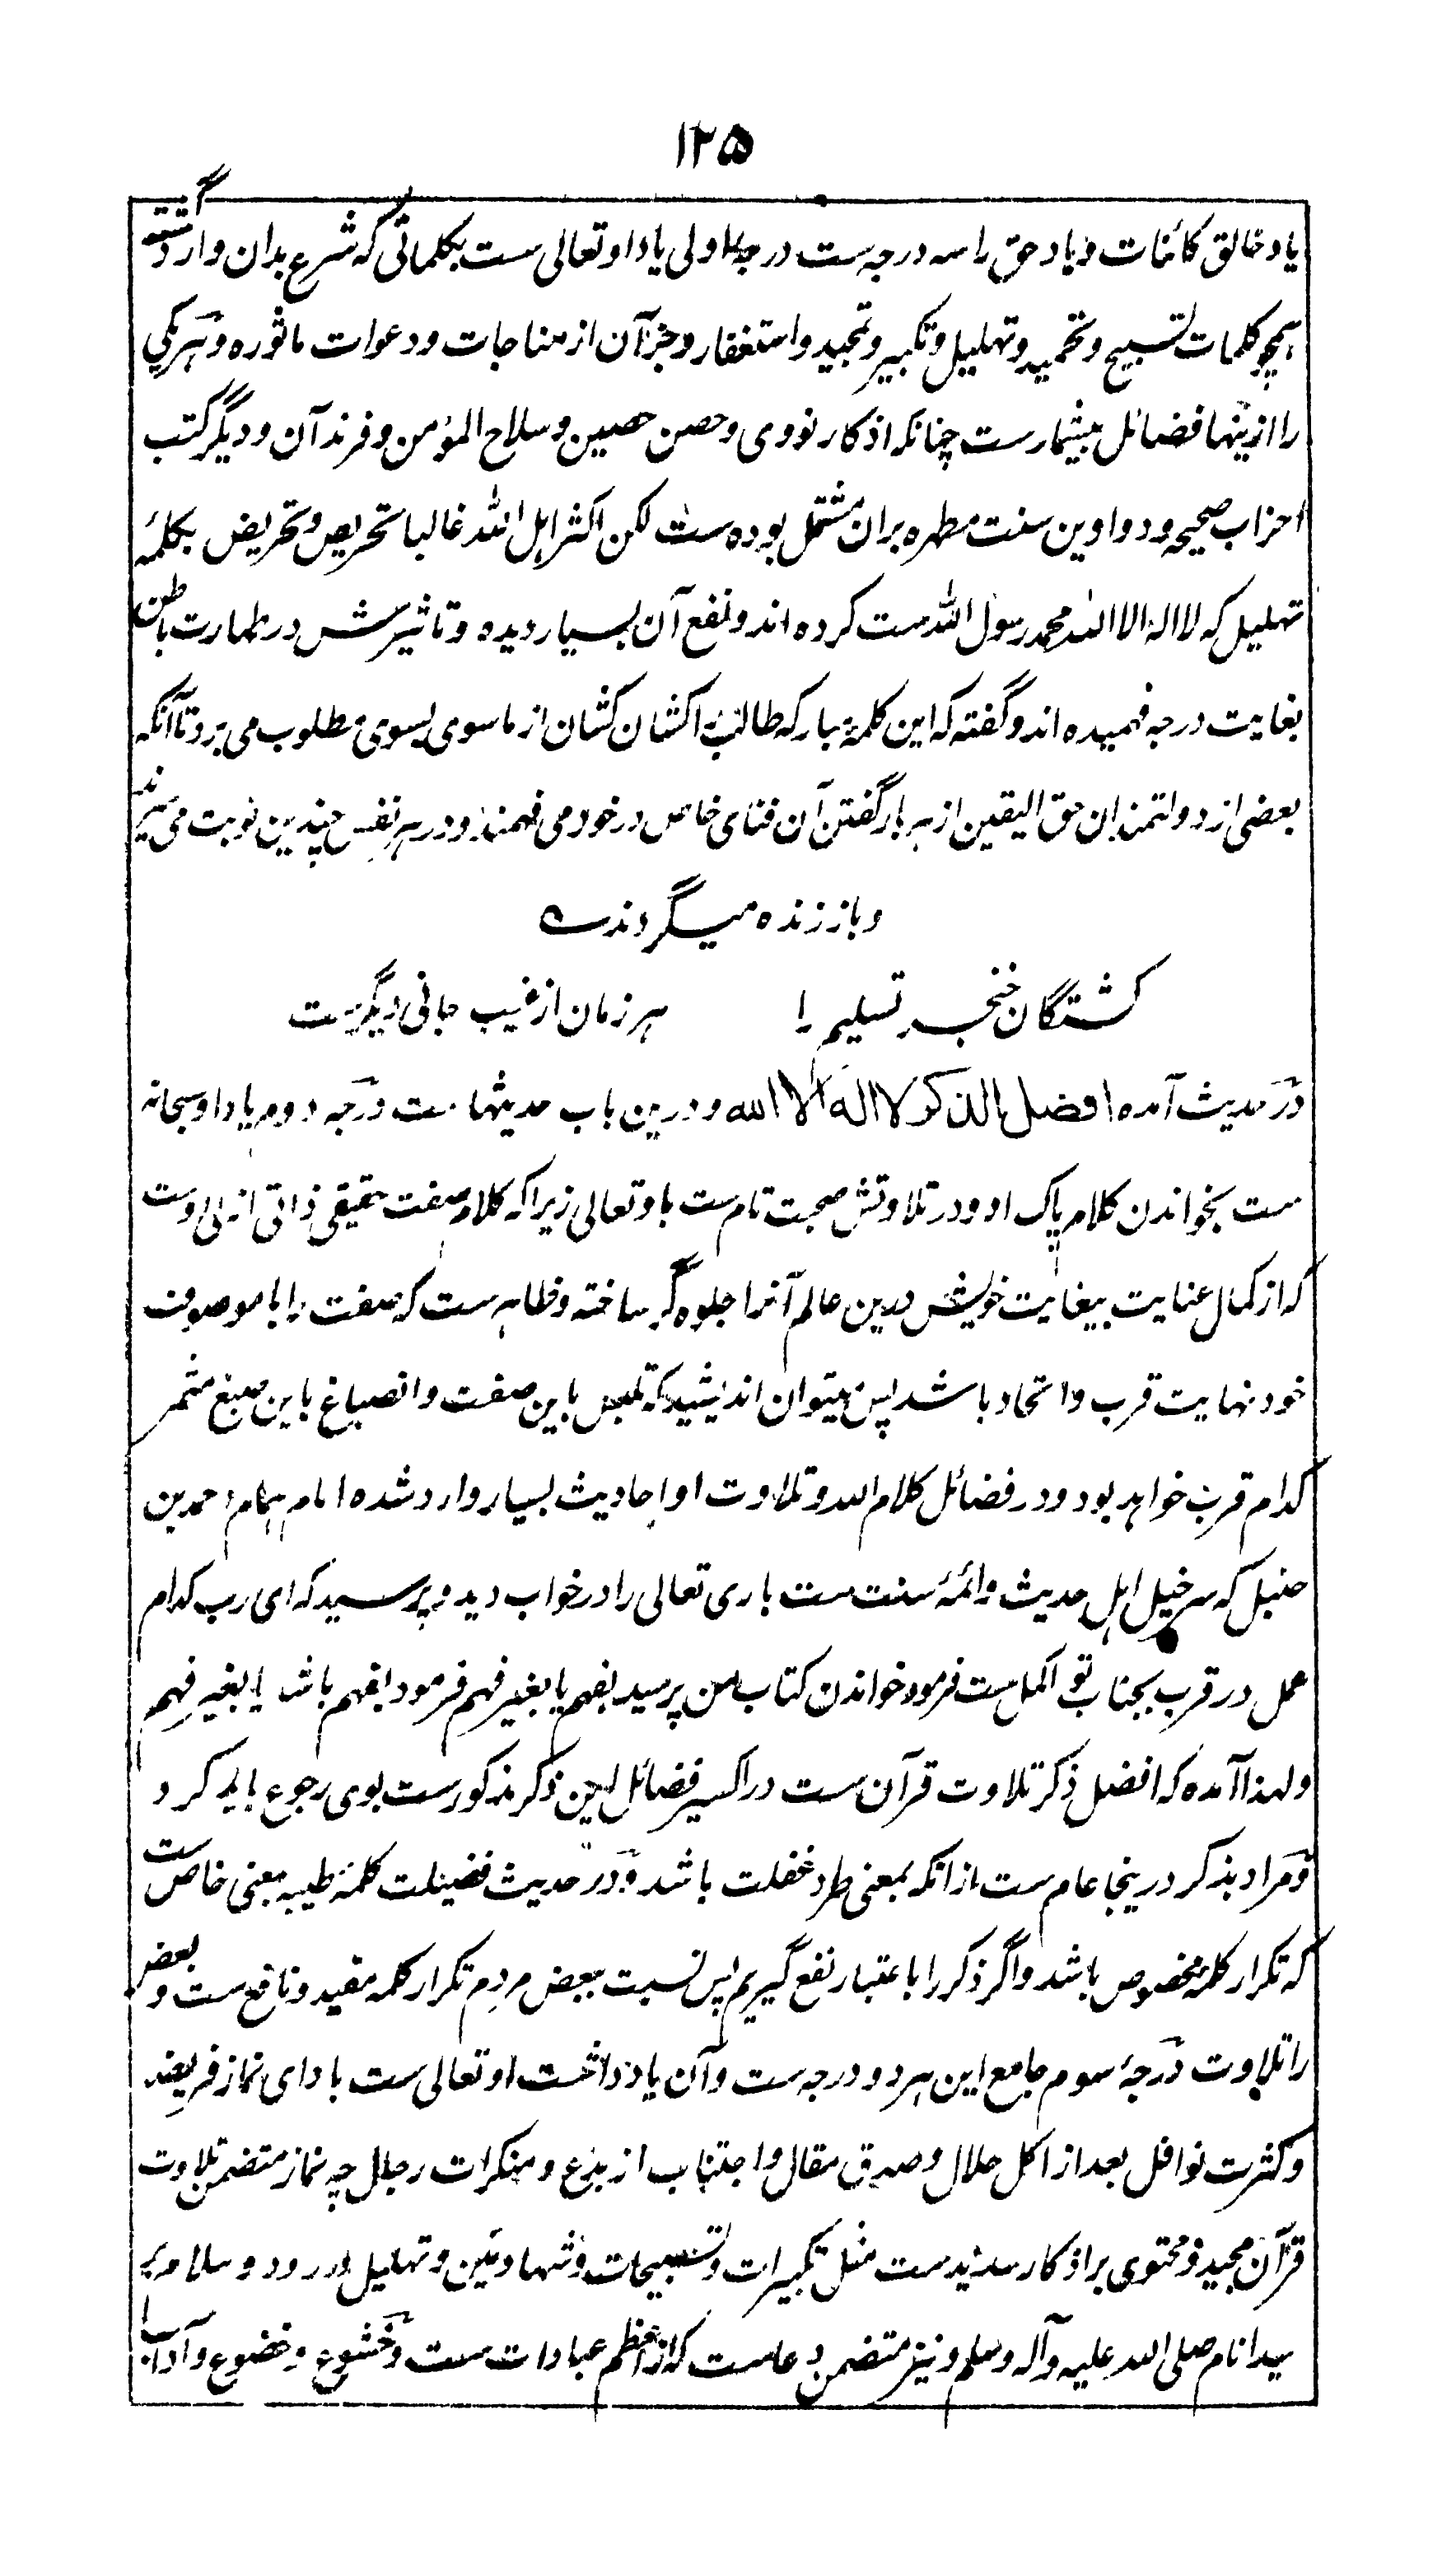 ۱۲۵
یاد خالق کائنات و یاد حق را سه درجه ست درجهٔ اولی یاد او تعالی ست بکلماتی که شرع بدان وارد گشته
همچو کلمات تسبیح و تحمید و تهلیل و تکبیر و تمجید و استغفار و جز آن از مناجات و دعوات ماثوره و هر یکی
را ازینها فضائل بیشمارست چنانکه اذکار نووی و حصن حصین و سلاح المؤمن و فرند آن و دیگر کتب
احزاب صحیحه و دواوین سنت مطهره بران مشتمل بوده ست لکن اکثر اهل الله غالبا تحریص و تحریض بکلمهٔ
تهلیل که لا اله الا الله محمد رسول الله ست کرده اند و نفع آن بسیار دیده و تاثیرش در طهارت باطن
بغایت درجه فهمیده اند و گفته که این کلمهٔ مبارکه طالب را کشان کشان از ماسوی بسوی مطلوب می برد تا آنکه
بعضی از دولتمندان حق الیقین از هر بار گفتن آن فنای خاص در خود می فهمند و در هر نفس چندین نوبت می میرند
و باز زنده میگردند
کشتگان خنجر تسلیم را هر زمان از غیب جانی دیگرست
در حدیث آمده افضل الذکر لا اله الا الله و درین باب حدیثهاست درجه دوم یاد او سبحانه
ست بخواندن کلام پاک او و در تلاوتش صحبت تام ست با و تعالی زیراکه کلام صفت حقیقی ذاتی ازلی اوست
که از کمال عنایت بیغایت خویش درین عالم آنرا جلوه گر ساخته و ظاهرست که صفت را با موصوف
خود نهایت قرب و اتحاد باشد پس میتوان اندیشید که تلبس باین صفت و انصباغ باین صبغ مثمر
کدام قرب خواهد بود و در فضائل کلام الله و تلاوت او احادیث بسیار وارد شده امام همام احمد بن
حنبل که سرخیل اهل حدیث و ائمهٔ سنت ست باری تعالی را در خواب دید و پرسید که ای رب کدام
عمل در قرب بجناب تو اکمل ست فرمود خواندن کتاب من پرسید بفهم یا بغیر فهم فرمود بفهم باشد یا بغیر فهم
و لهذا آمده که افضل ذکر تلاوت قرآن ست در اکسیر فضائل این ذکر مذکورست بوی رجوع باید کرد
و مراد بذکر درینجا عام ست از انکه بمعنی طرد غفلت باشد و در حدیث فضیلت کلمهٔ طیبه معنی خاص ست
که تکرار کلمهٔ مخصوص باشد و اگر ذکر را باعتبار نفع گیریم پس نسبت ببعض مردم تکرار کلمه مفید و نافع ست و بعض
را تلاوت درجهٔ سوم جامع این هر دو درجه ست و آن یادداشت او تعالی ست بادای نماز فریضه
و کثرت نوافل بعد از اکل حلال و صدق مقال و اجتناب از بدع و منکرات رجال چه نماز متضمن تلاوت
قرآن مجید و محتوی بر اذکار سدیدست مثل تکبیرات و تسبیحات و شهادتین و تهلیل و درود و سلام بر
سید انام صلی الله علیه و آله وسلم و نیز متضمن دعاست که از اعظم عبادات ست و خشوع و خضوع و آداب